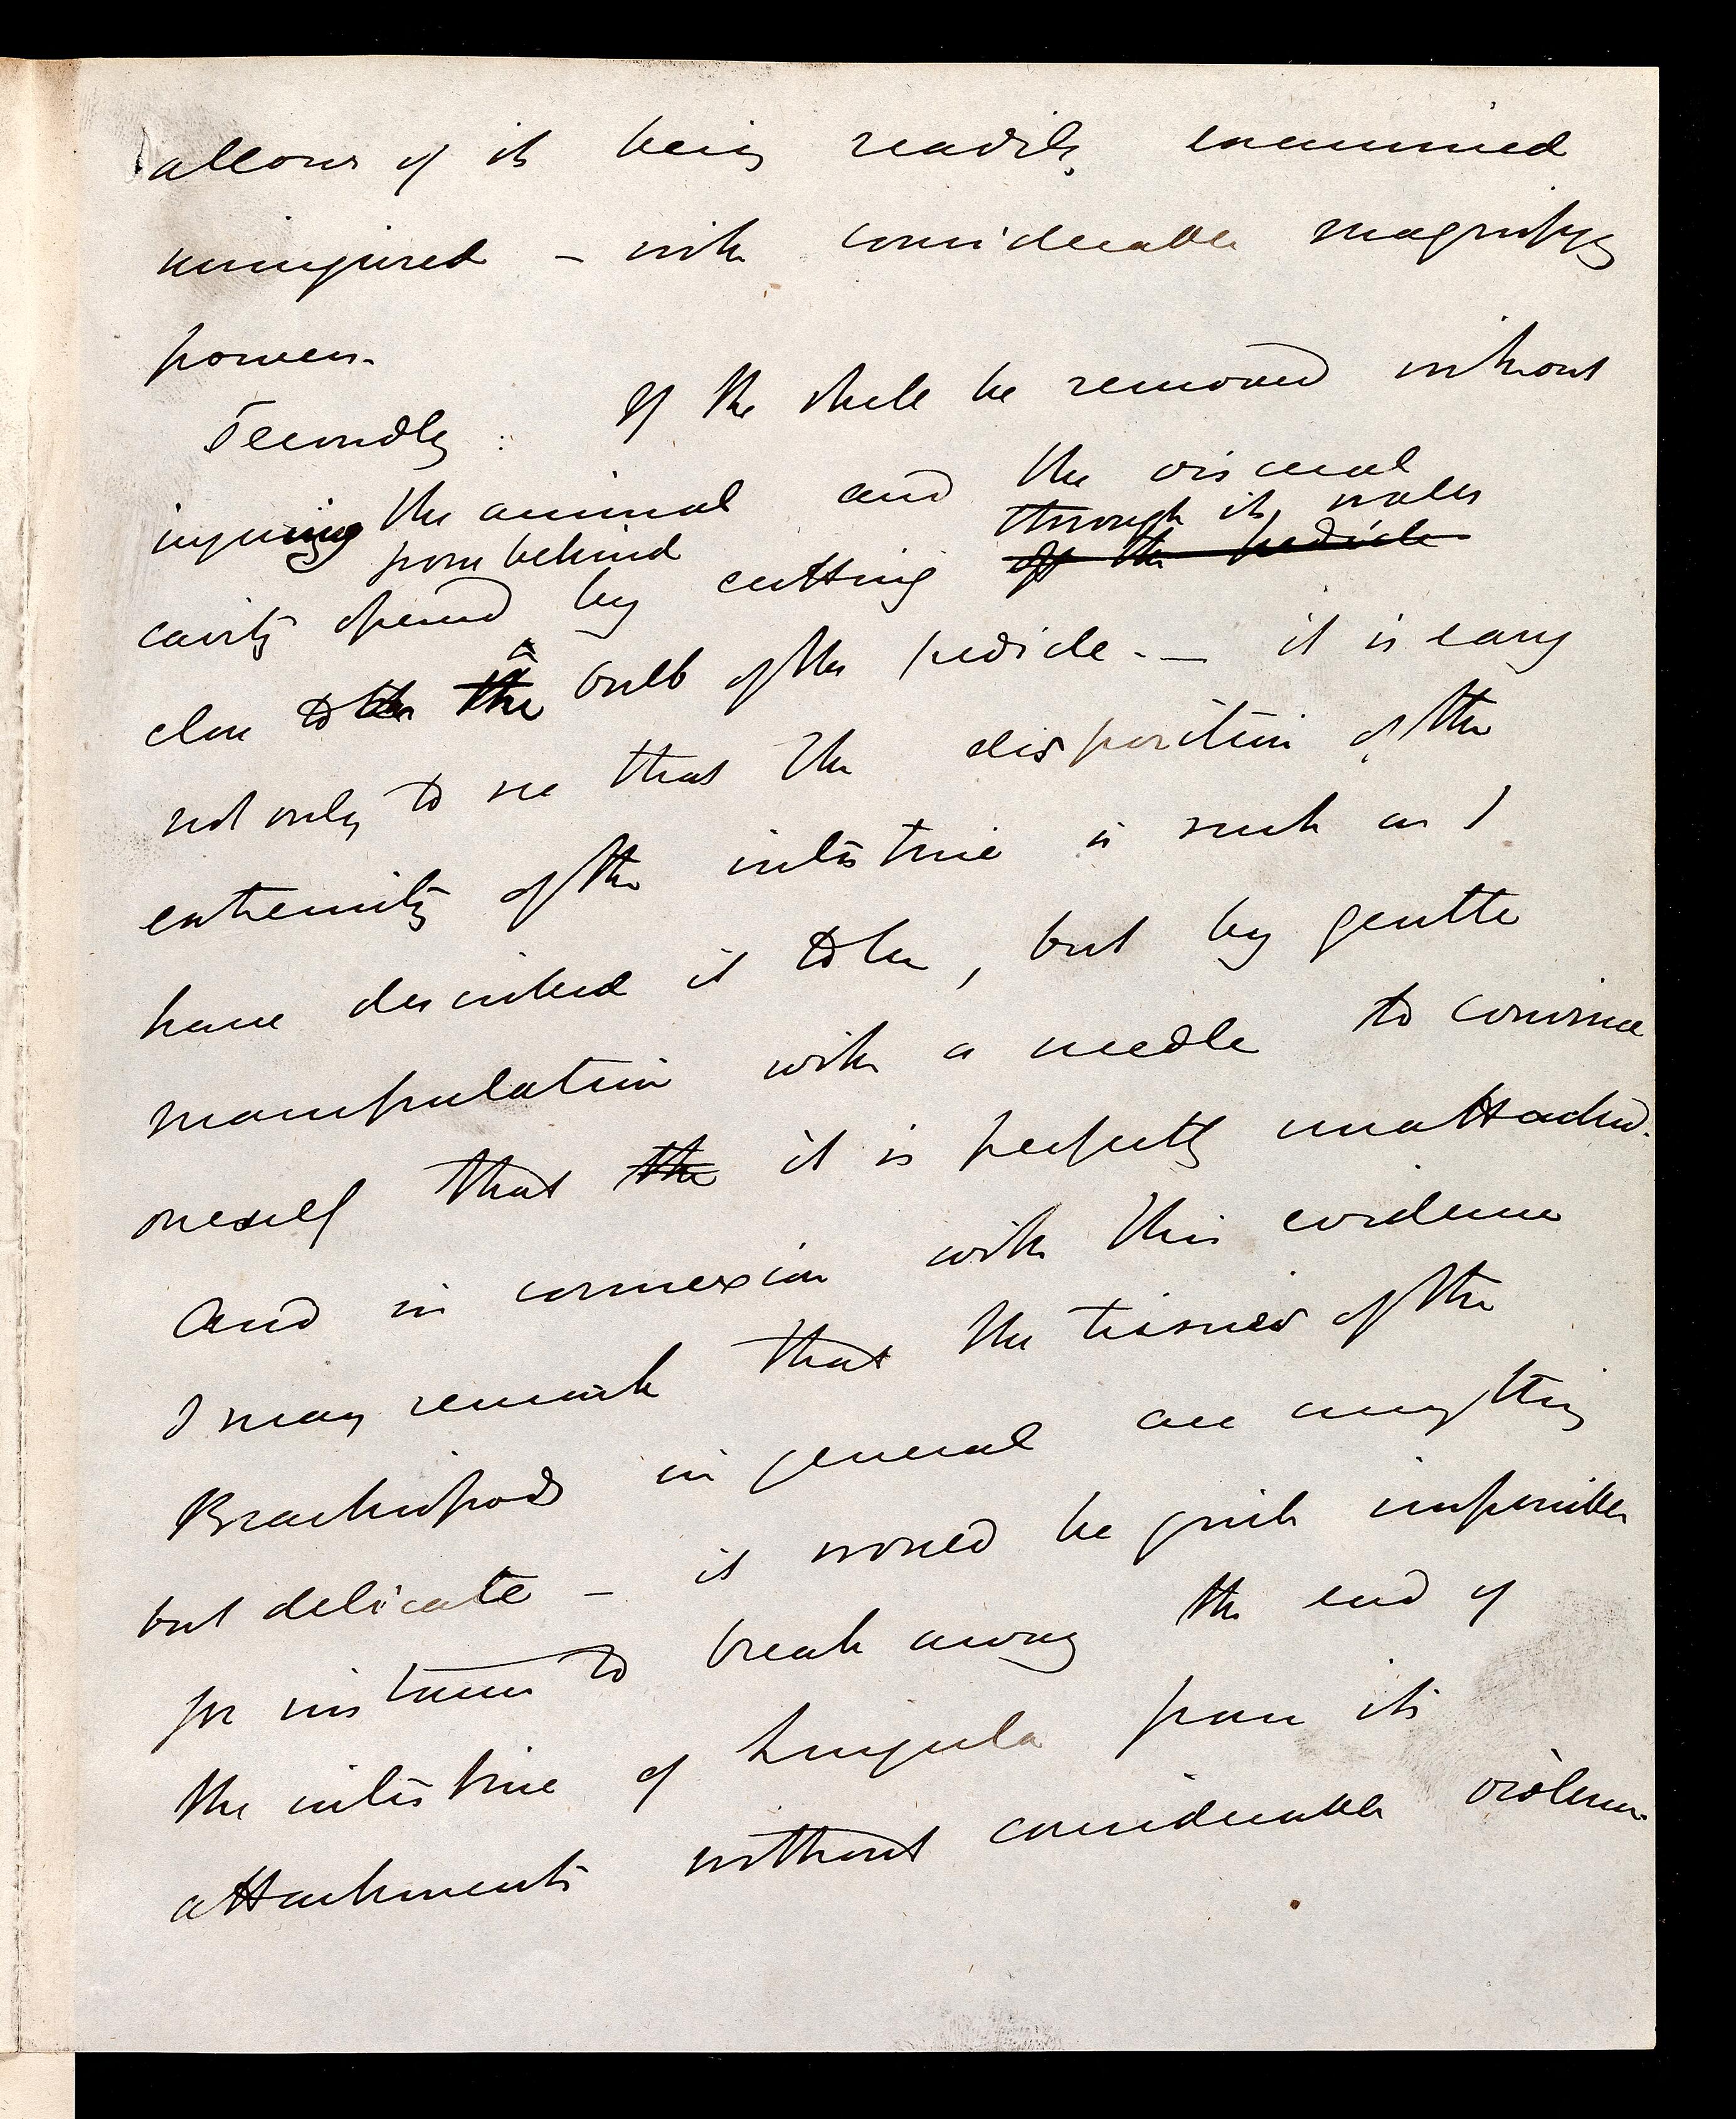 allows of its being readily examined
uninjured – with considerable magnifying
powers.
Secondly: If the shell be removed without
injuring the animal and the visceral
from behind through its walls
cavity opened by cutting off the pedicle
close to the bulb of the pedicle. — it is easy
not only to see that the disposition of the
extremity of the intestine is such as I
have described it to be, but by gentle
manipulation with a needle to convince
oneself that the it is perfectly unattached.
And in connexion with this evidence
I may remark that the tissues of the
Brachiopods in general are anything
but delicate – it would be quite impossible
for instance to break away the end of
the intestine of Lingula from its
attachments without considerable violence.